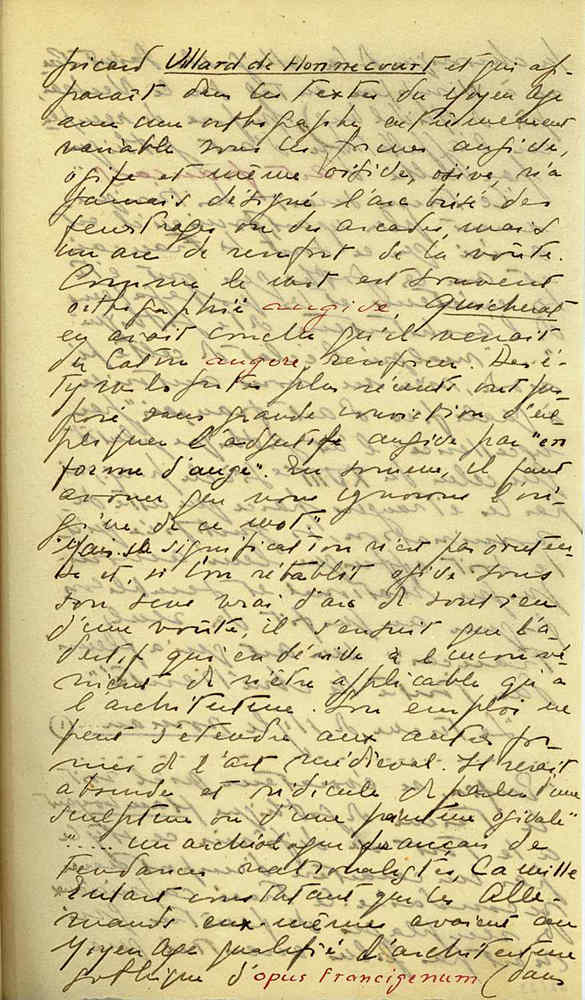 picard Villard de Honnecourt et qui ap-
paraît dans les textes du Moyen Age
avec une orthographe extrêmement
variable sous les formes augive,
ogife et même oisive, osive, n'a
jamais désigné l'arc brisé des
fenêtrages ou des arcades, mais
un arc de renfort de la voûte.
Comme le mot est souvent
orthographié augive, Quicherat
en avait conclu qu'il venait
du latin augere, renforcer. Des é-
tymologistes plus récents ont pro-
posé sans grande conviction d'ex-
pliquer l'adjectif augive par "en
forme d'auge". En somme, il faut
avouer que nous ignorons l'ori-
gine de ce mot"
"Mais sa signification n'est pas douteu-
se et, si l'on rétablit ogive sous
son sens vrai d'arc de soutien
d'une voûte, il s'ensuit que l'a-
djectif qui en dérive a l'inconvé-
nient de n'être applicable qu'à
l'architecture. Son emploi ne
peut s'étendre aux autres for-
mes de l'art médiéval. Il serait
absurde et ridicule de parler d'une
sculpture ou d'une peinture ogivale"
"..... un archéologue français de
tendances nationalistes, Camille
Enlart constatant que les Alle-
mands eux-mêmes avaient au
Moyen Age qualifié l'architecture
gothique d'opus francigenum (dans